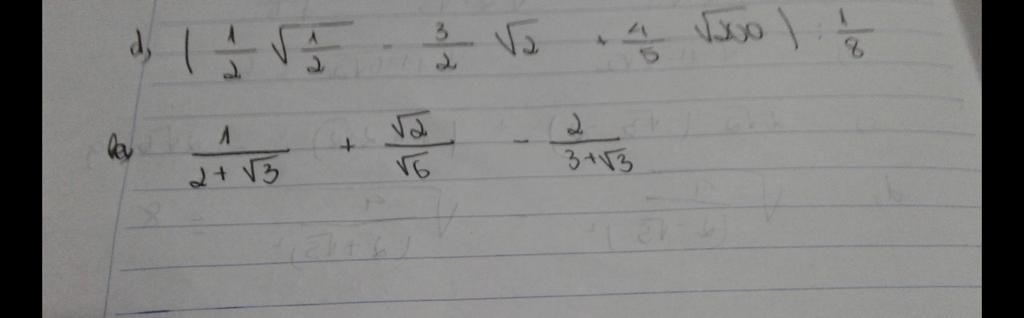 d, ( 1/2 √(1/2) - 3/2 √2 + 4/5 √200 ) : 1/8
1/(2+√3) + √2/√6 - 2/(3+√3)